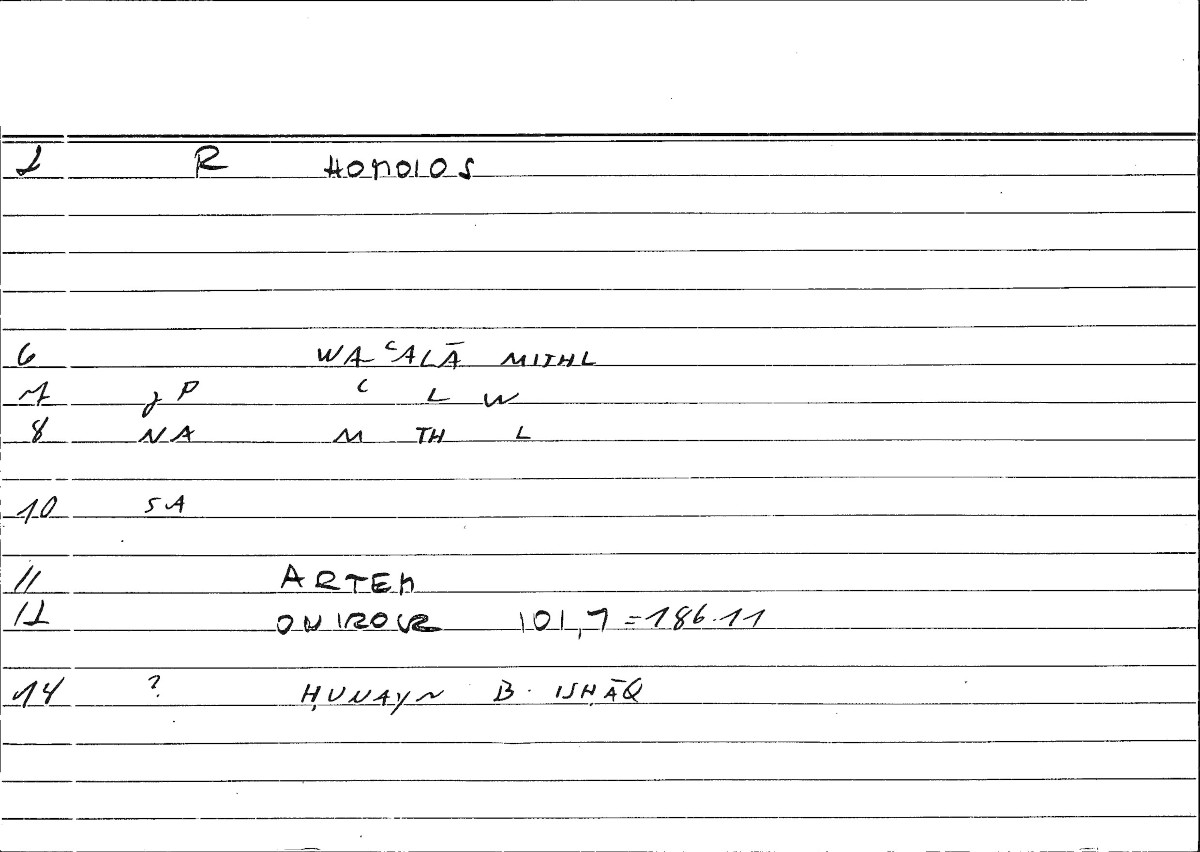 2 R HOMOIOS
6 WA ʿALĀ MITHL
7 gP ʿ L W
8 NA M TH L
10 SA
11 ARTEM
12 ONIROCR 101,7 = 186.11
14 ? ḤUNAYN B. ISḤĀQ